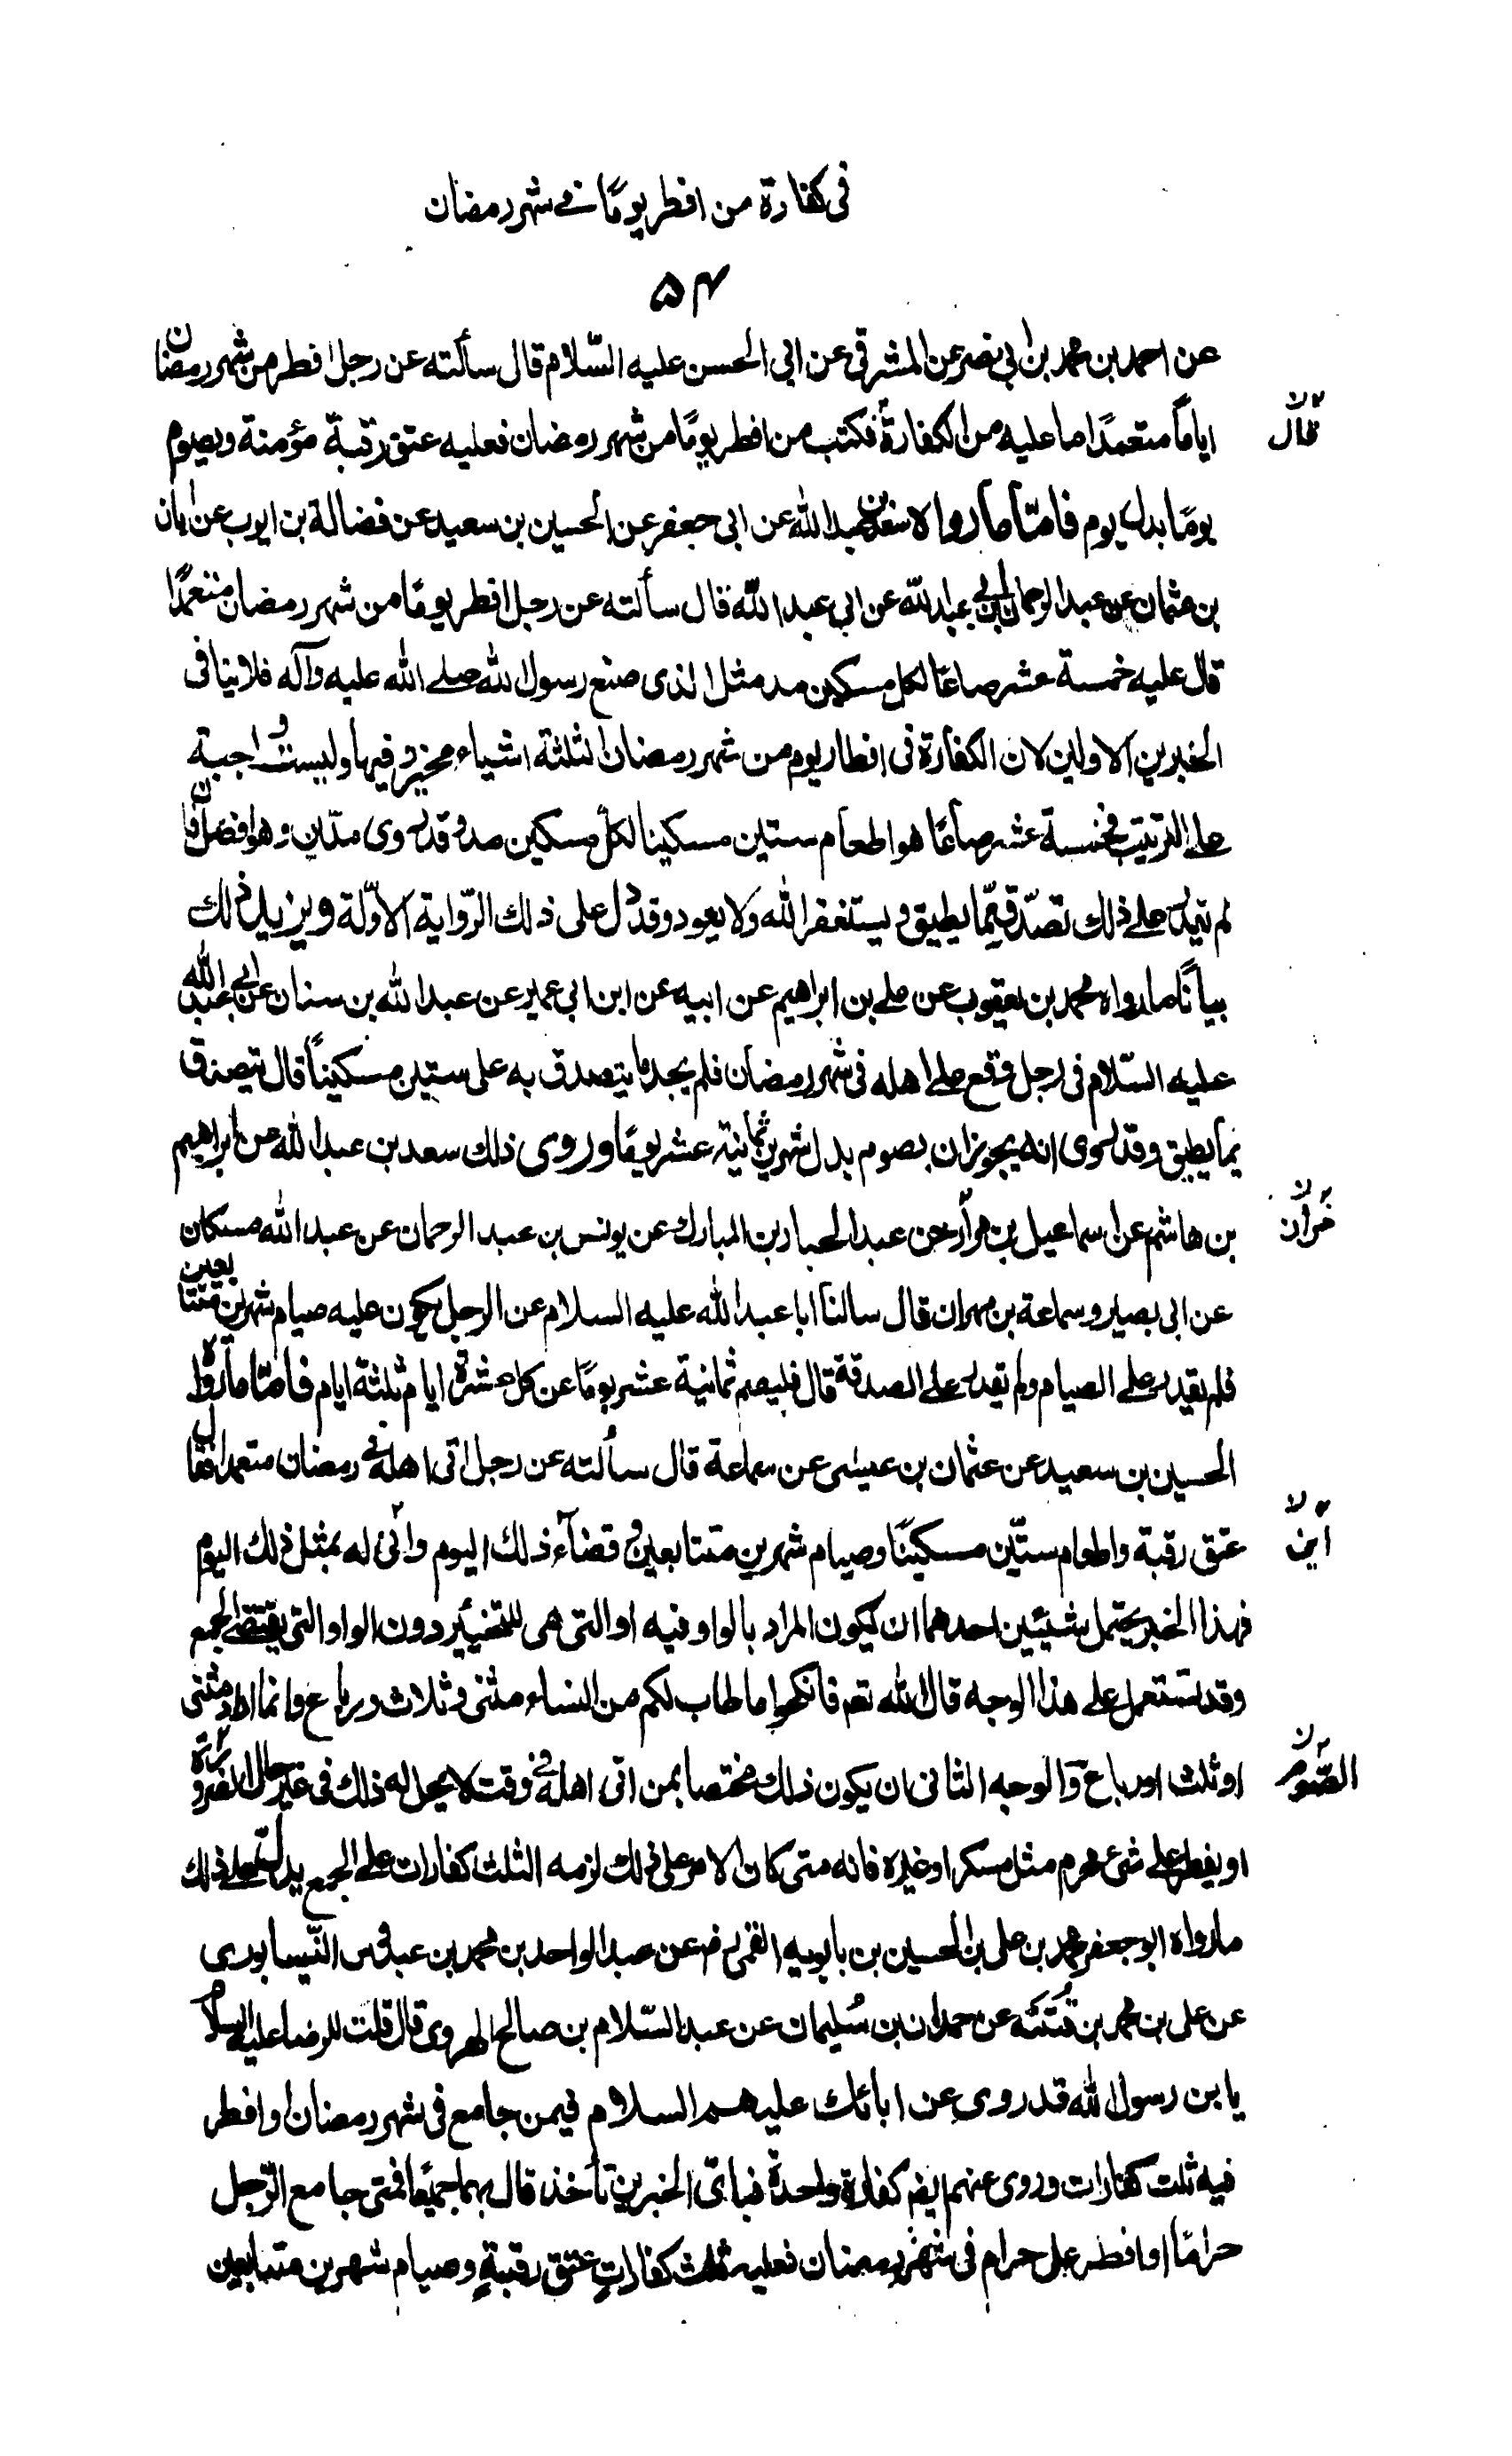 فى كفارة من افطر يومًا فے شهر رمضان
۵۴
عن احمد بن محمد بن ابى نصر عن المشرقى عن ابى الحسن عليه السّلام قال سألته عن رجل افطر من شهر رمضان
اياماً متعمدًا ما عليه من الكفارة فكتب من افطر يومًا من شهر رمضان فعليه عتق رقبة مؤمنة ويصوم
قال
يومًا بدل يوم فامّا ما رواه سعد بن عبد الله عن ابى جعفر عن الحسين بن سعيد عن فضالة بن ايوب عن ابان
بن عثمان عن عبد الرحمان بن ابى عبد الله عن ابى عبد الله قال سألته عن رجل افطر يومًا من شهر رمضان متعمدًا
قال عليه خمسة عشر صاعًا لكل مسكين مد مثل الذى صنع رسول الله صلے الله عليه وآله فلا ينافى
الخبرين الاولين لان الكفارة فى افطار يوم من شهر رمضان ثلثة اشياء مخير فيها وليست واجبة
على الترتيب فخمسة عشر صاعًا هو اطعام ستين مسكينا لكلّ مسكين مد وقد روى مدّان وهو افضل فان
لم يقدر على ذلك تصدّق بما يطيق ويستغفر الله ولا يعود وقد دل على ذلك الرّواية الاوّلة ويزيد ذلك
بيانًا ما رواه محمد بن يعقوب عن علے بن ابراهيم عن ابيه عن ابن ابى عمير عن عبد الله بن سنان عن ابى عبد الله
عليه السّلام فى رجل وقع على اهله فى شهر رمضان فلم يجد ما يتصدق به على ستين مسكيناً قال يتصدق
بما يطيق وقد روى انه يجوز ان يصوم بدل شهرين ثمانية عشر يومًا وروى ذلك سعد بن عبد الله عن ابراهيم
بن هاشم عن اسماعيل بن مرّار عن عبد الجبار بن المبارك عن يونس بن عبد الرحمان عن عبد الله مسكان
عن ابى بصير وسماعة بن مهران قال سالنا ابا عبد الله عليه السلام عن الرجل يكون عليه صيام شهرين متتابعين
فلم يقدر على الصيام ولم يقدر على الصدقة قال فليصم ثمانية عشر يومًا عن كل عشرة ايام ثلثة ايام فامّا ما رواه
الحسين بن سعيد عن عثمان بن عيسى عن سماعة قال سألته عن رجل اتى اهله فے رمضان متعمدا فقال
عتق رقبة واطعام ستّين مسكينًا وصيام شهرين متتابعين وقضآء ذلك اليوم وانى له بمثل ذلك اليوم
اين
فهذا الخبر يحتمل شيئين احدهما ان يكون المراد بالواو فيه او التى هى للتخيير دون الواو التى يقتضى الجمع
وقد تستعمل على هذا الوجه قال الله تعم فانكحوا ما طاب لكم من النساء مثنى وثلاث ورباع وانما اراد مثنى
او ثلث او رباع والوجه الثانى ان يكون ذلك مختصا بمن اتى اهله فے وقت لا يحل له ذلك فى غير حال الضرورة
الصّوم
او يفطر على شئ محرم مثل مسكر او غيره فانه متى كان الامر على ذلك لزمه الثلث كفارات على الجمع يدل على ذلك
ما رواه ابو جعفر محمد بن على بن الحسين بن بابويه القمى رض عن عبد الواحد بن محمد بن عبدوس النّيسابورى
عن على بن محمد بن قُتَيبَة عن حمدان بن سُليمان عن عبد السّلام بن صالح الهروى قال قلت للرضا عليه السلام
يا بن رسول الله قد روى عن ابائك عليهم السلام فيمن جامع فى شهر رمضان او افطر
فيه ثلث كفارات وروى عنهم ايضم كفارة واحدة فباىّ الخبرين نأخذ قال بهما جميعًا فمتى جامع الرّجل
حرامًا او افطر على حرام فى شهر رمضان فعليه ثلث كفارات عتق رقبةٍ وصيام شهرين متتابعين